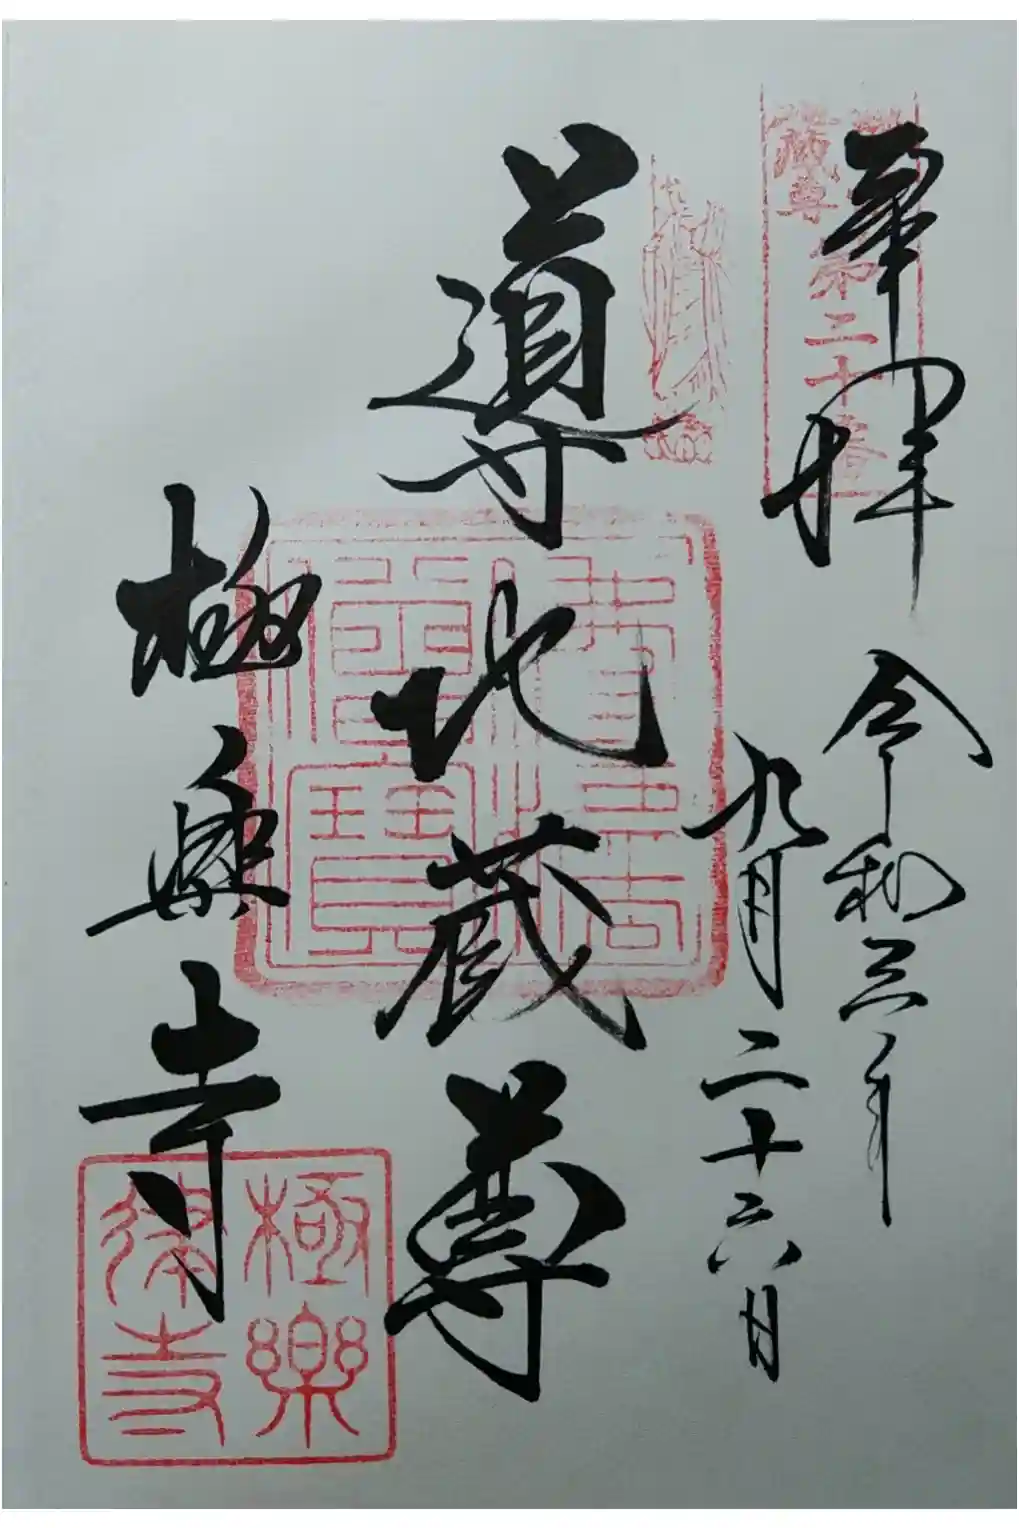 奉拝
令和三年
九月二十六日
導地蔵尊
極楽寺
地蔵尊
第二十番
極樂
律寺